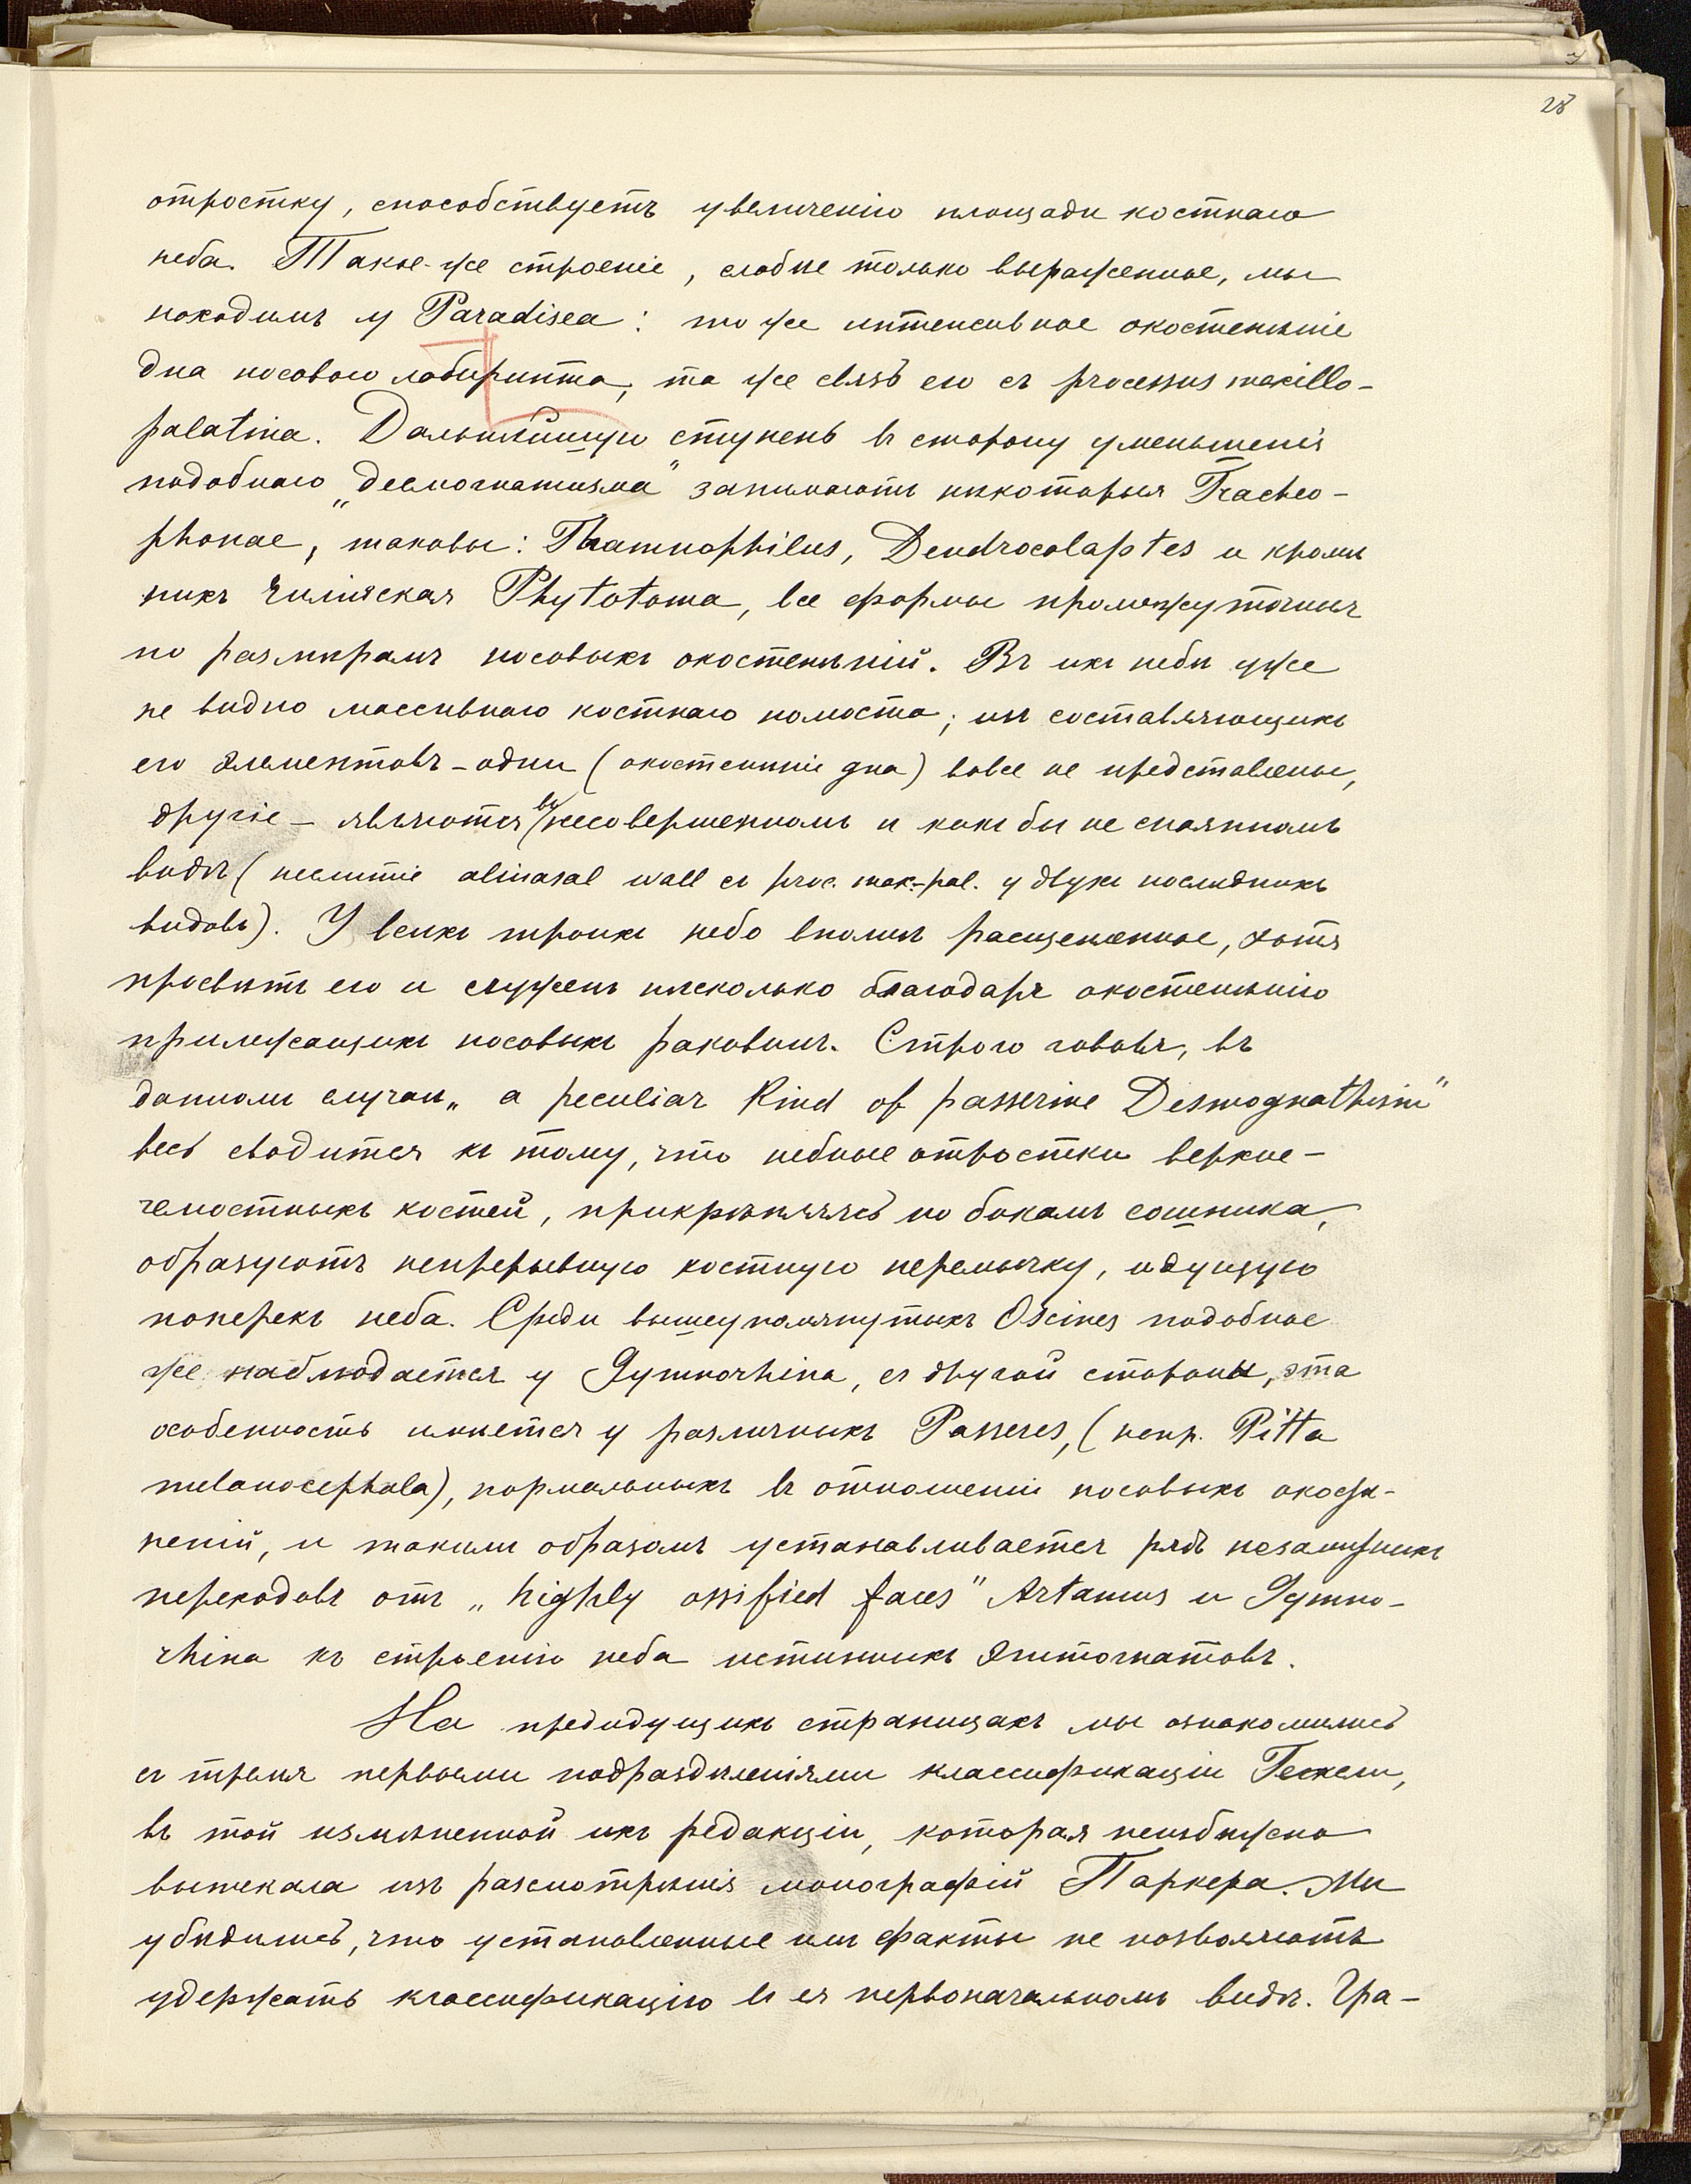 28
отростку, способствуетъ увеличенію площади костнаго
неба. Такое-же строеніе, слабѣе только выраженное, мы
находимъ у Paradisea: то же интенсивное окостенѣніе
дна носового лабиринта, та же связь его съ processus maxillo-
palatina. Дальнѣйшую ступень въ сторону уменьшенія
подобнаго „десмогнатизма" занимаютъ нѣкоторыя Tracheo-
phonae, таковы: Thamnophilus, Dendrocolaptes и кромѣ
нихъ Чилійская Phytotoma, все формы промежуточныя
по размѣрамъ носовыхъ окостенѣній. Въ ихъ небѣ уже
не видно массивнаго костнаго помоста; изъ составляющихъ
его элементовъ - одни (окостенѣніе дна) вовсе не представлены,
другіе - являются въ несовершенномъ и какъ бы не спаянномъ
видѣ (неслитіе alinasal wall съ proc. max.-pal. у двухъ послѣднихъ
видовъ). У всѣхъ троихъ небо вполнѣ расщепленное, хотя
просвѣтъ его и суженъ нѣсколько благодаря окостенѣнію
прилежащихъ носовыхъ раковинъ. Строго говоря, въ
данномъ случаѣ „a peculiar Kind of passerine Desmognathism"
весь сводится къ тому, что небные отростки верхне-
челюстныхъ костей, прикрѣпляясь по бокамъ сошника,
образуютъ непрерывную костную перемычку, идущую
поперекъ неба. Среди вышеупомянутыхъ Oscines подобное
же наблюдается у Gymnorhina, съ другой стороны, эта
особенность имѣется у различныхъ Passeres, (напр. Pitta
melanocephala), нормальныхъ въ отношеніи носовыхъ окосте-
неній, и такимъ образомъ устанавливается рядъ незамѣтныхъ
переходовъ отъ „highly ossified faces" Artamus и Gymno-
rhina къ строенію неба истинныхъ эгитогнатовъ.
На предыдущихъ страницахъ мы ознакомились
съ тремя первыми подраздѣленіями классификаціи Гексли,
въ той измѣненной ихъ редакціи, которая неизбѣжно
вытекала изъ разсмотрѣнія монографій Паркера. Мы
убѣдились, что установленные имъ факты не позволяютъ
удержать классификацію въ ея первоначальномъ видѣ. Гра-